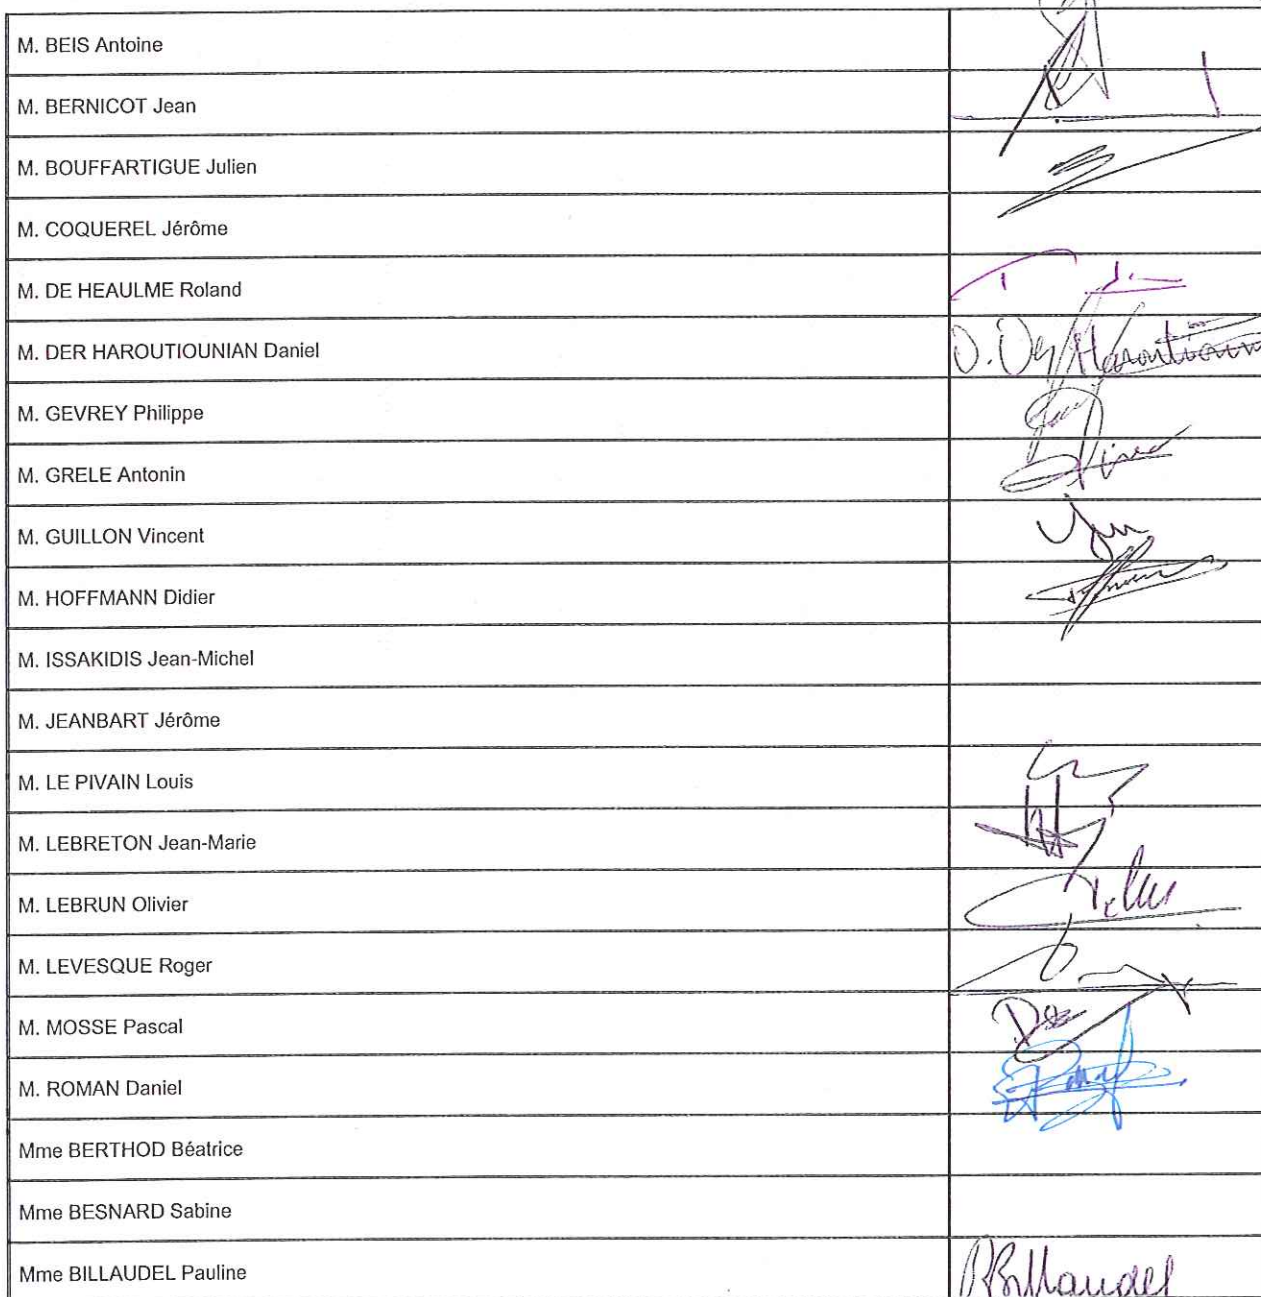 M. BEIS Antoine
M. BERNICOT Jean
M. BOUFFARTIGUE Julien
M. COQUEREL Jérôme
M. DE HEAULME Roland
M. DER HAROUTIOUNIAN Daniel D. Der Haroutioun
M. GEVREY Philippe
M. GRELE Antonin
M. GUILLON Vincent
M. HOFFMANN Didier
M. ISSAKIDIS Jean-Michel
M. JEANBART Jérôme
M. LE PIVAIN Louis
M. LEBRETON Jean-Marie
M. LEBRUN Olivier
M. LEVESQUE Roger
M. MOSSE Pascal
M. ROMAN Daniel
Mme BERTHOD Béatrice
Mme BESNARD Sabine
Mme BILLAUDEL Pauline PBillaudel